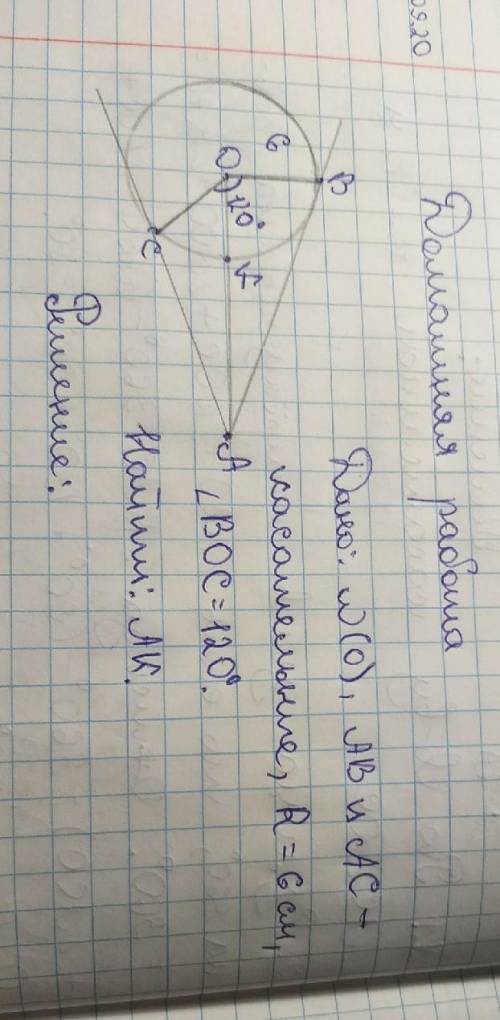 09.20
Домашняя работа
Дано: w(O), AB и AC -
касательные, R = 6 см,
∠BOC = 120°.
Найти: AK.
Решение:
B
6
O
120°
K
C
A